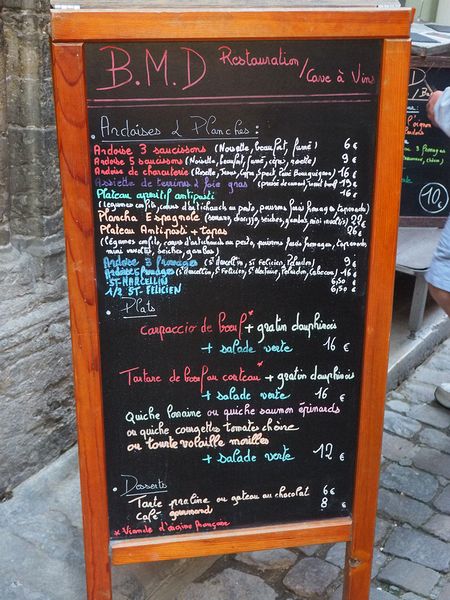 B.M.D Restauration/
Cave à Vins
. Ardoises & Planches :
Ardoise 3 saucissons (Noisette, beaufort, fumé) 6 €
Ardoise 5 saucissons (Noisette, beaufort, fumé, cèpes, rosette) 9 €
Ardoise de charcuterie (Rosette, 16 €
Assiette de terrines & foie gras 19 €
Plateau apéritif antipasti 16 €
(légumes confits, cœurs d'artichauts au pesto, poivrons farcis fromage, tapenade)
Plancha Espagnole 22 €
Plateau Antipasti + tapas 26 €
(légumes confits, cœurs d'artichauts au pesto, poivrons farcis fromage, tapenade,
mini
Ardoise 3 fromages (St Marcellin, St Félicien, 9 €
Ardoise 5 fromages (St Marcellin, St Félicien, 16 €
ST-MARCELLIN 6,50 €
1/2 ST-FELICIEN 6,50 €
. Plats
carpaccio de bœuf* + gratin dauphinois
+ salade verte 16 €
Tartare de bœuf au couteau* + gratin dauphinois
+ salade verte 16 €
Quiche lorraine ou quiche saumon épinards
ou quiche courgettes tomates chèvre
ou tourte volaille morilles
+ salade verte 12 €
. Desserts
Tarte praline ou gateau au chocolat 6 €
Café gourmand 8 €
* Viande d'origine française
10